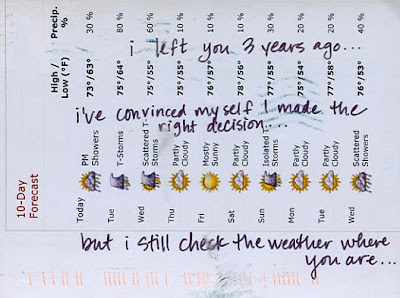 i left you 3 years ago...
i've convinced myself I made the
right decision....
but i still check the weather where
you are...
10-Day
Forecast
High /
Low (°F)
Precip.
%
Today PM Showers 73°/63° 30 %
Tue T-Storms 75°/64° 80 %
Wed Scattered T-Storms 75°/55° 60 %
Thu Partly Cloudy 75°/55° 10 %
Fri Mostly Sunny 76°/57° 10 %
Sat Partly Cloudy 78°/56° 10 %
Sun Isolated Storms 77°/55° 30 %
Mon Partly Cloudy 75°/54° 20 %
Tue Partly Cloudy 77°/58° 20 %
Wed Scattered Showers 76°/53° 40 %